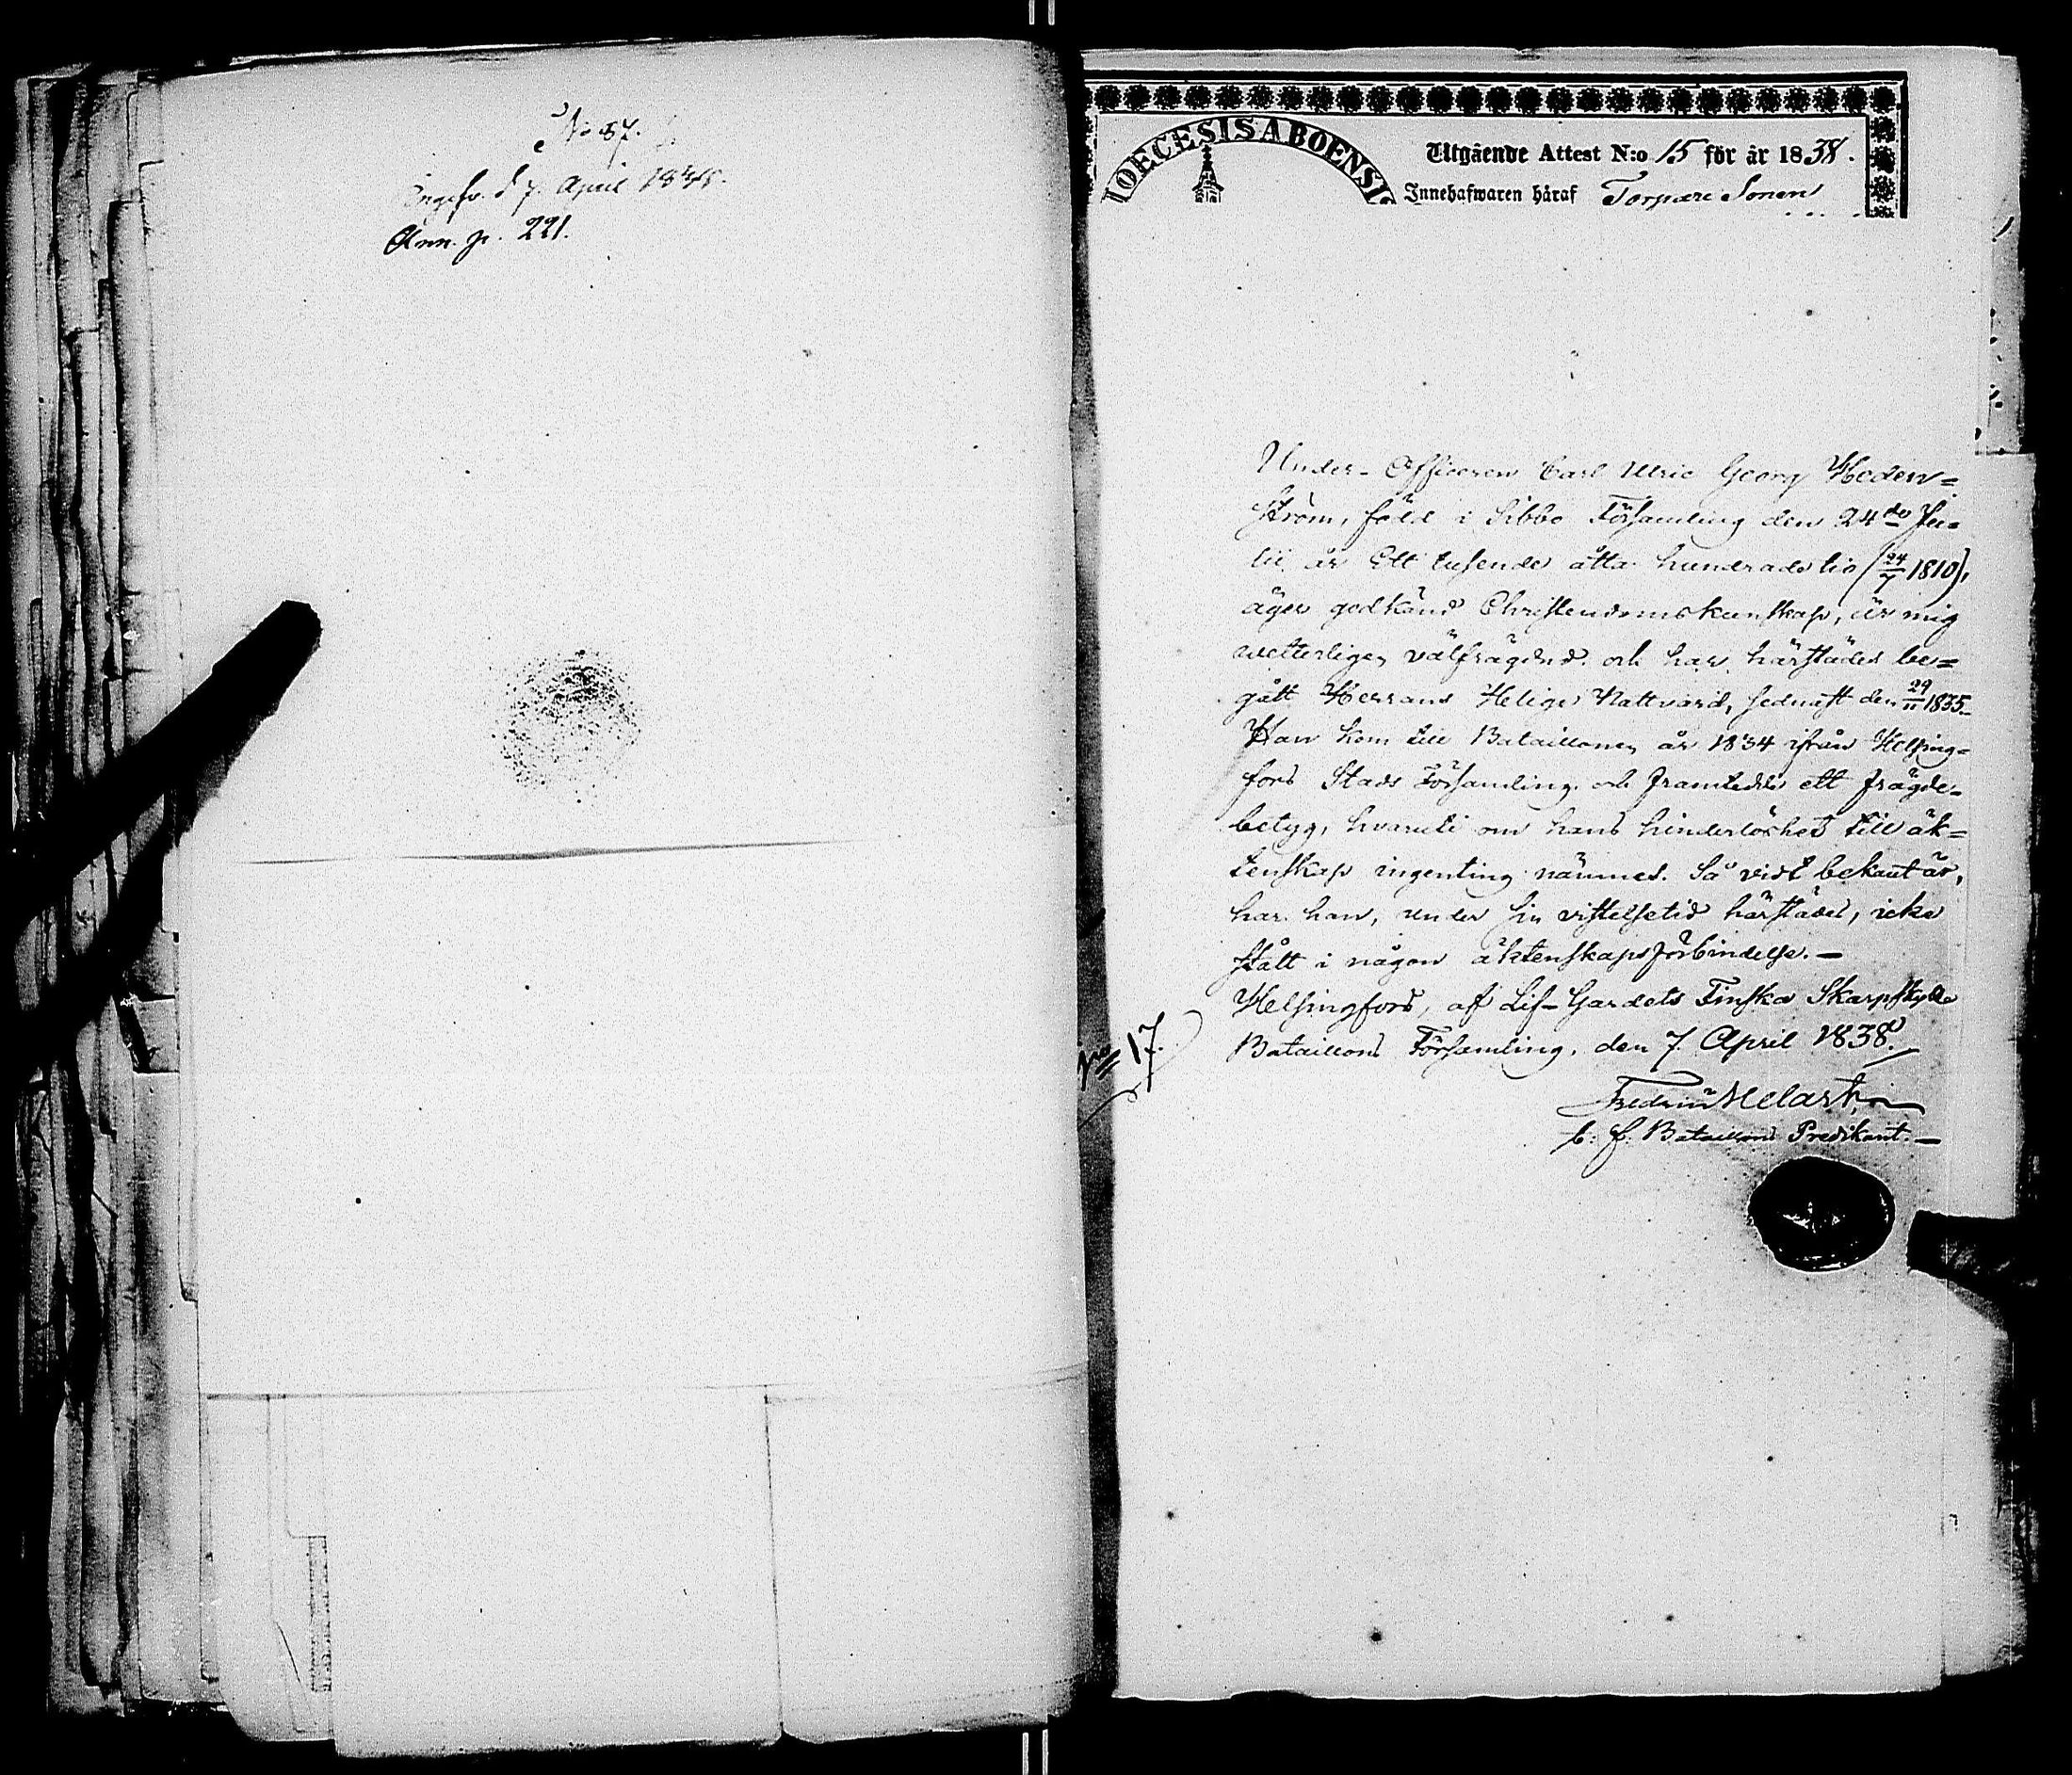 No 87.
d. 7. April
Ann. p. 221.
DIOECESIS ABOENSIS
Utgående Attest N:o 15 för år 1838.
Innehafwaren häraf Torpare Sonen
Under-Officeren Carl Ulric Georg Heden=
ström, född i Sibbo Församling den 24de Ju=
lii år Ett tusende åtta hundrade tio (24/7 1810),
äger godkänd Christendomskunskap, är mig
vetterligen välfrägdad och har härstädes be=
gått Herrans Heliga Nattvard, sednast den 29/11 1835.
Han kom till Bataillonen år 1834 ifrån Helsing=
fors Stads Församling och framtedde ett frägde=
betyg, hvaruti om hans hinderlöshet till äk=
tenskap ingenting nämnes. Så vidt bekant är,
har han, under sin vistelsetid härstädes, icke
stått i någon äktenskapsförbindelse. —
Helsingfors, af Lif-Gardets Finska Skarpskytte
Bataillons Församling, den 7. April 1838.
No 17.
Bataillons Predikant. —